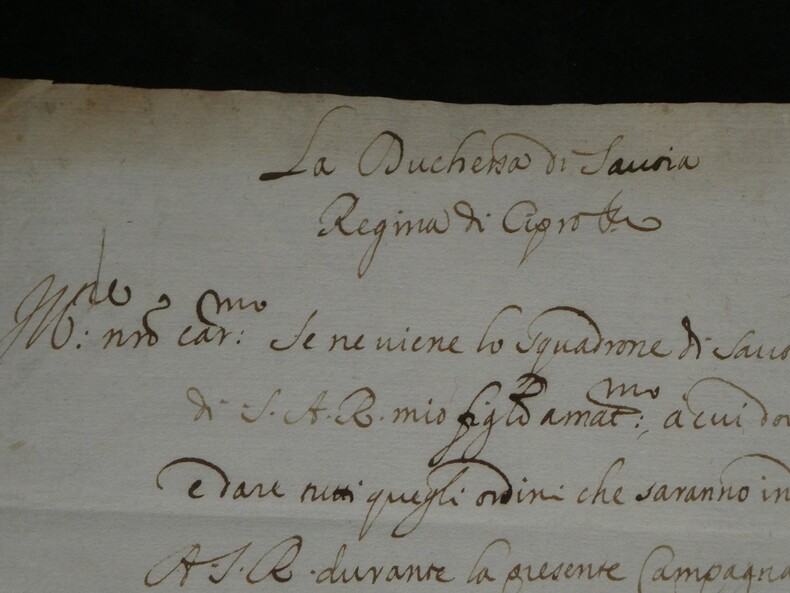 La Duchessa di Savoia
Regina di Cipro &c.
M.: nro car:mo Se ne viene lo Squadrone di Savo
di S. A. R. mio figlo amat:mo, a cui do
e dare tutti quegli ordini che saranno in
A. S. R. durante la presente Campagna